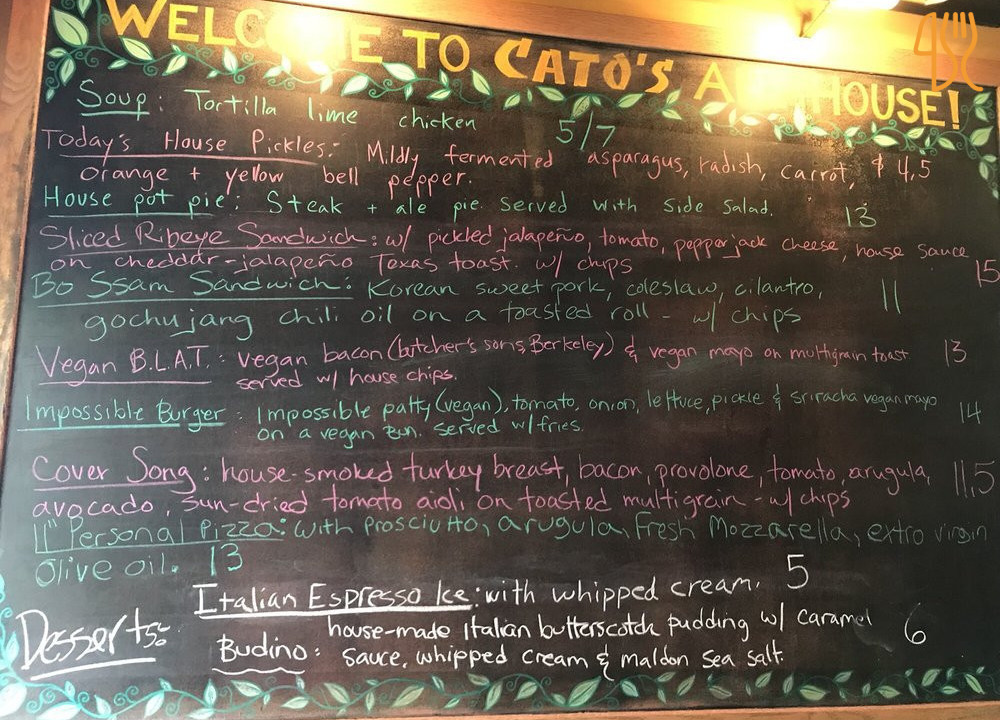 WELC E TO CATO'S A HOUSE!
Soup: Tortilla lime chicken 5/7
Today's House Pickles:- Mildly fermented asparagus, radish, carrot, $ 4,5
orange + yellow bell pepper.
House pot pie: Steak + ale pie served with side salad. 13
Sliced Ribeye Sandwich: w/ pickled jalapeño, tomato, pepperjack cheese, house sauce
on cheddar-jalapeño Texas toast. w/ chips 15
Bo Ssam Sandwich: Korean sweet pork, coleslaw, cilantro, 11
gochujang chili oil on a toasted roll - w/ chips
Vegan B.L.A.T.: vegan bacon (butcher's sons, Berkeley) & vegan mayo on multigrain toast 13
served w/ house chips.
Impossible Burger: Impossible patty (vegan), tomato, onion, lettuce, pickle & sriracha vegan mayo 14
on a vegan bun. served w/ fries.
Cover Song: house-smoked turkey breast, bacon, provolone, tomato, arugula, 11,5
avocado, sun-dried tomato aioli on toasted multigrain - w/ chips
11" Personal Pizza: with Prosciutto, arugula, Fresh Mozzarella, extra virgin
olive oil. 13
Italian Espresso Ice: with whipped cream. 5
Desserts
house-made Italian butterscotch pudding w/ caramel 6
Budino: sauce, whipped cream & maldon sea salt.